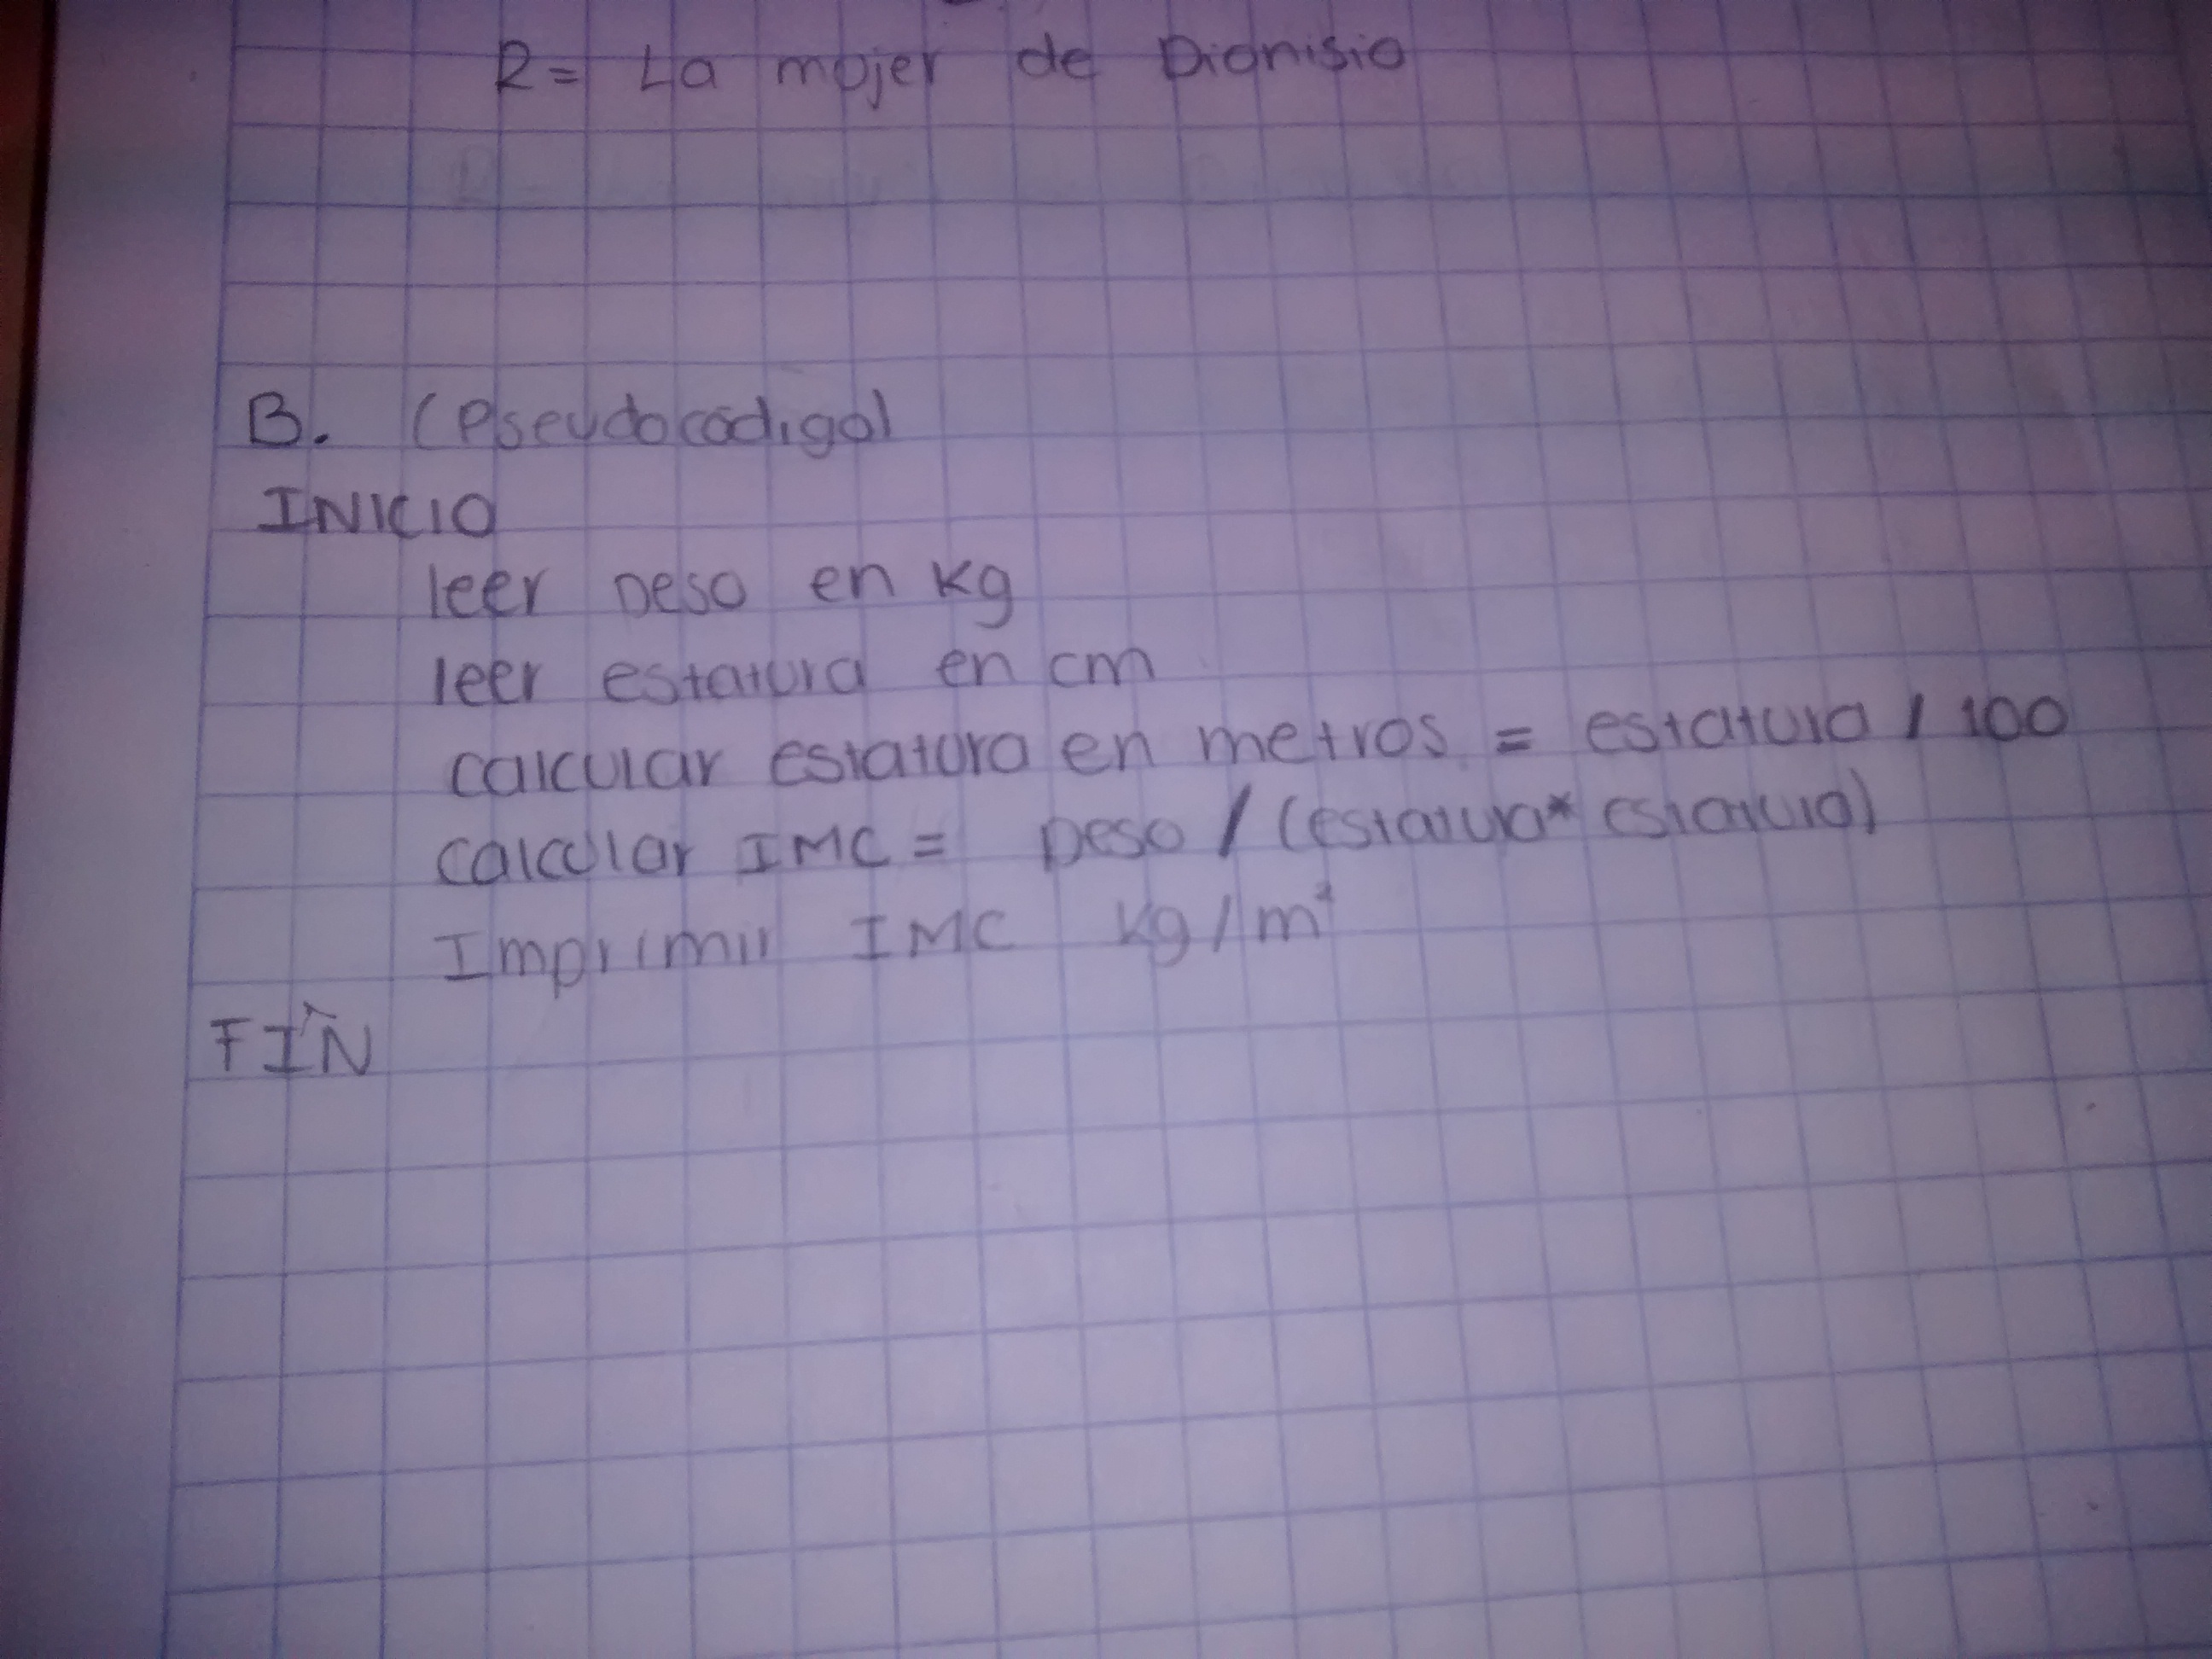 R= La mujer de Dionisio
B. (Pseudocódigo)
INICIO
leer peso en kg
leer estatura en cm
calcular estatura en metros = estatura / 100
calcular IMC = peso / (estatura* estatura)
Imprimir IMC kg/m²
FIN